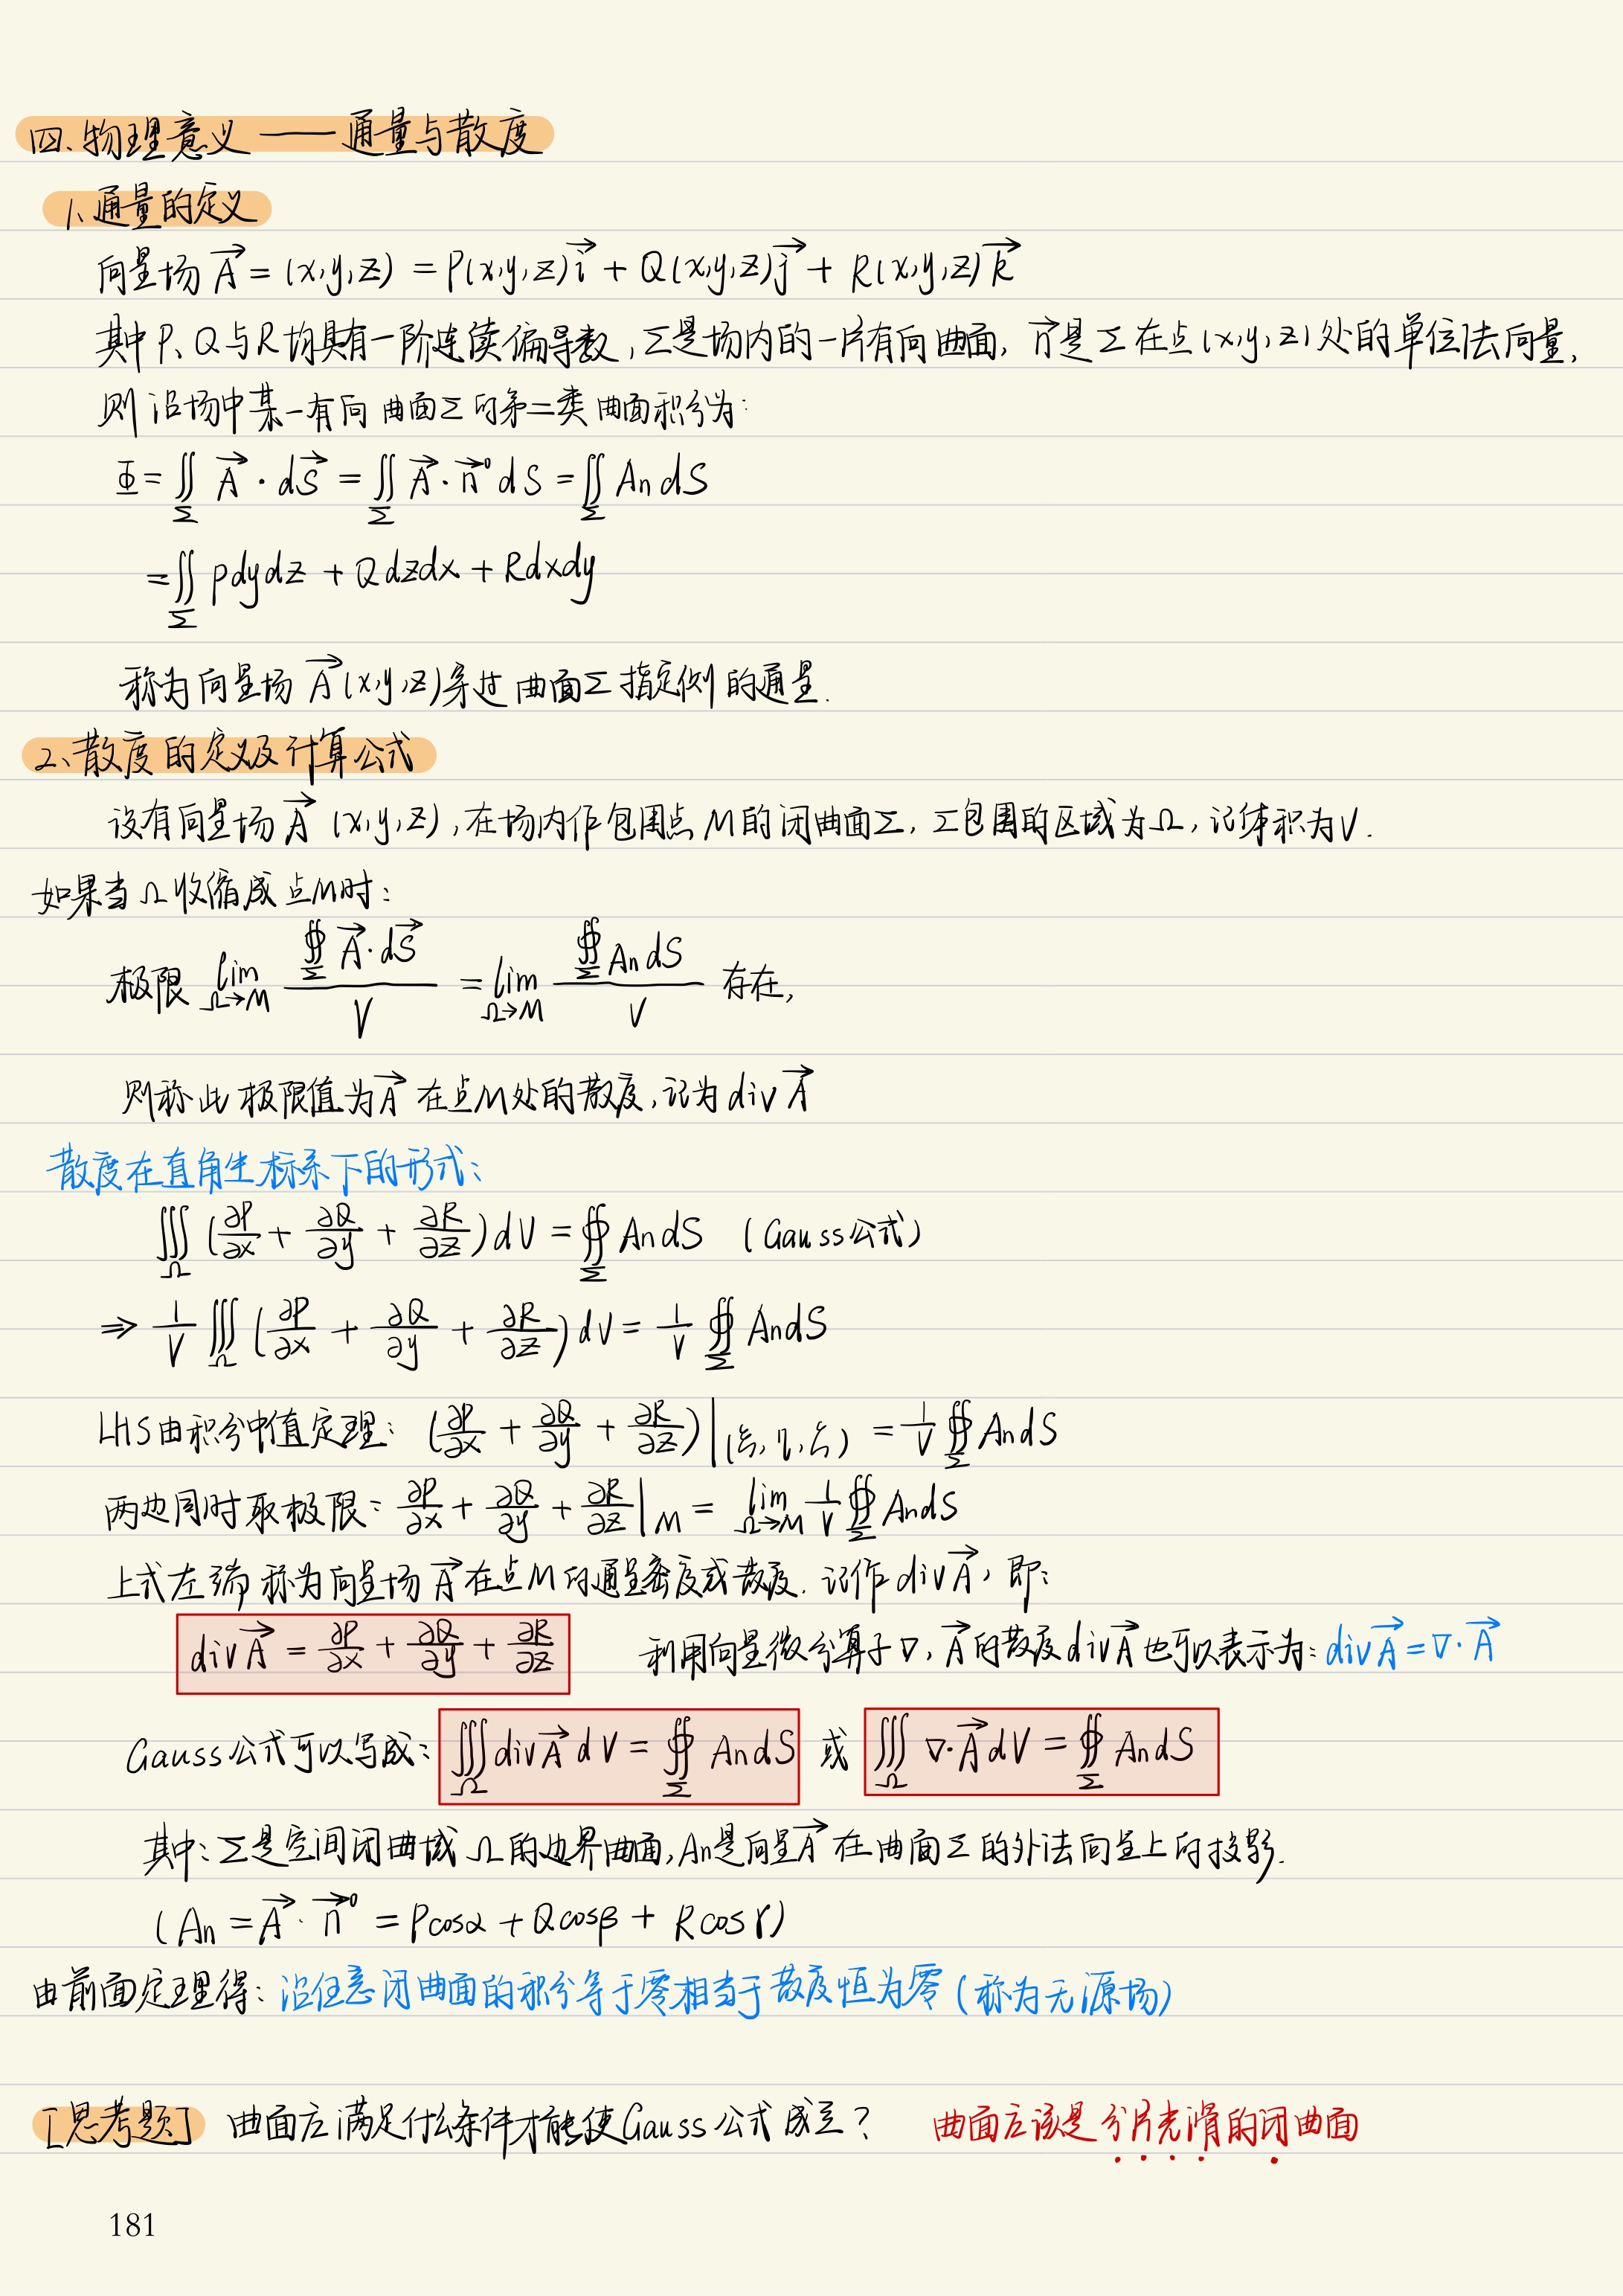 四.物理意义 —— 通量与散度
1、通量的定义
向量场 $\vec{A} = (x,y,z) = P(x,y,z)\vec{i} + Q(x,y,z)\vec{j} + R(x,y,z)\vec{k}$
其中P、Q与R均具有一阶连续偏导数,Σ是场内的一片有向曲面, $\vec{n}$是Σ在点(x,y,z)处的单位法向量,
则沿场中某一有向曲面Σ的第二类曲面积分为:
$\Phi = \iint_{\Sigma} \vec{A} \cdot d\vec{S} = \iint_{\Sigma} \vec{A} \cdot \vec{n}^0 dS = \iint_{\Sigma} A_n dS$
$= \iint_{\Sigma} Pdydz + Qdzdx + Rdxdy$
称为向量场 $\vec{A}(x,y,z)$穿过曲面Σ指定侧的通量.
2、散度的定义及计算公式
设有向量场 $\vec{A}$ (x,y,z),在场内作包围点M的闭曲面Σ, Σ包围的区域为Ω,记体积为V.
如果当Ω收缩成点M时:
极限 $\lim_{\Omega \to M} \frac{\oiint_{\Sigma} \vec{A} \cdot d\vec{S}}{V} = \lim_{\Omega \to M} \frac{\oiint_{\Sigma} A_n dS}{V}$ 存在,
则称此极限值为$\vec{A}$ 在点M处的散度,记为 $div \vec{A}$
散度在直角坐标系下的形式:
$\iiint_{\Omega} (\frac{\partial P}{\partial x} + \frac{\partial Q}{\partial y} + \frac{\partial R}{\partial z}) dV = \oiint_{\Sigma} A_n dS$ (Gauss公式)
$\Rightarrow \frac{1}{V} \iiint_{\Omega} (\frac{\partial P}{\partial x} + \frac{\partial Q}{\partial y} + \frac{\partial R}{\partial z}) dV = \frac{1}{V} \oiint_{\Sigma} A_n dS$
LHS由积分中值定理: $(\frac{\partial P}{\partial x} + \frac{\partial Q}{\partial y} + \frac{\partial R}{\partial z})|_{(\xi, \eta, \xi)} = \frac{1}{V} \oiint_{\Sigma} A_n dS$
两边同时取极限: $\frac{\partial P}{\partial x} + \frac{\partial Q}{\partial y} + \frac{\partial R}{\partial z}|_M = \lim_{\Omega \to M} \frac{1}{V} \oiint_{\Sigma} A_n dS$
上式左端称为向量场 $\vec{A}$ 在点M的通量密度或散度. 记作 $div \vec{A}$, 即:
$div \vec{A} = \frac{\partial P}{\partial x} + \frac{\partial Q}{\partial y} + \frac{\partial R}{\partial z}$ 利用向量微分算子∇, $\vec{A}$的散度$div \vec{A}$也可以表示为: $div \vec{A} = \nabla \cdot \vec{A}$
Gauss公式可以写成: $\iiint_{\Omega} div \vec{A} dV = \oiint_{\Sigma} A_n dS$ 或 $\iiint_{\Omega} \nabla \cdot \vec{A} dV = \oiint_{\Sigma} A_n dS$
其中:Σ是空间闭曲域 Ω的边界曲面,An是向量$\vec{A}$ 在曲面Σ的外法向量上的投影.
($A_n = \vec{A} \cdot \vec{n}^0 = P\cos\alpha + Q\cos\beta + R\cos\gamma$)
由前面定理得: 沿任意闭曲面的积分等于零相当于散度恒为零 (称为无源场)
[思考题] 曲面应满足什么条件才能使Gauss公式成立? 曲面应该是分片光滑的闭曲面
181